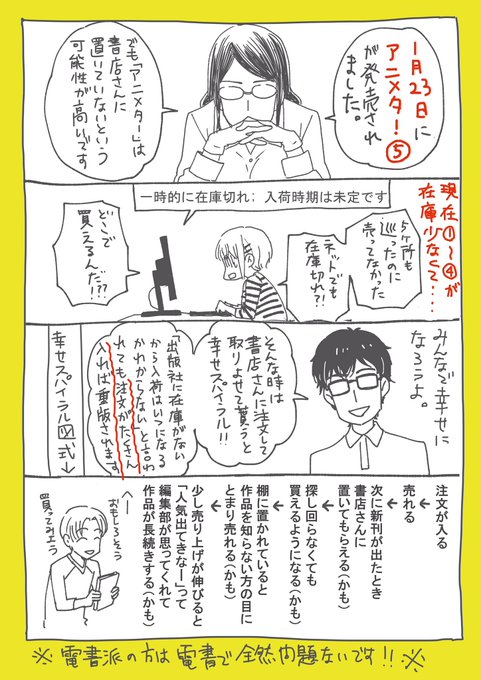 1月23日に
アニメタ!⑤
が発売され
ました。
でも「アニメタ!」は
書店さんに
置いていないという
可能性が高いです
現在①〜④が
在庫少なくて・・・
一時的に在庫切れ; 入荷時期は未定です
5ヶ所も
巡ったのに
売ってなかった
ネットでも
在庫切れ?!
どこで
買えるんだ!!??
みんなで幸せに
なろうよ。
そんな時は
書店さんに注文して
取りよせて貰うと
幸せスパイラル!!
出版社に在庫がない
から入荷はいつになる
かわからないと言わ
れても注文がたくさん
入れば重版されます
幸せスパイラル図式↓
注文が入る
↓
売れる
↓
次に新刊が出たとき
書店さんに
置いてもらえる(かも)
↓
探し回らなくても
買えるようになる(かも)
↓
棚に置かれていると
作品を知らない方の目に
とまり売れる(かも)
↓
少し売り上げが伸びると
「人気出てきたなー」って
編集部が思ってくれて
作品が長続きする(かも)
へー
おもしろそう
買ってみよう
※電書派の方は電書で全然問題ないです!!※